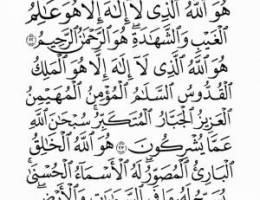 هُوَ ٱللَّهُ ٱلَّذِى لَآ إِلَٰهَ إِلَّا هُوَ عَٰلِمُ
ٱلْغَيْبِ وَٱلشَّهَٰدَةِ هُوَ ٱلرَّحْمَٰنُ ٱلرَّحِيمُ ٢٢
هُوَ ٱللَّهُ ٱلَّذِى لَآ إِلَٰهَ إِلَّا هُوَ ٱلْمَلِكُ
ٱلْقُدُّوسُ ٱلسَّلَٰمُ ٱلْمُؤْمِنُ ٱلْمُهَيْمِنُ
ٱلْعَزِيزُ ٱلْجَبَّارُ ٱلْمُتَكَبِّرُ سُبْحَٰنَ ٱللَّهِ
عَمَّا يُشْرِكُونَ ٢٣ هُوَ ٱللَّهُ ٱلْخَٰلِقُ
ٱلْبَارِئُ ٱلْمُصَوِّرُ لَهُ ٱلْأَسْمَآءُ ٱلْحُسْنَىٰ
يُسَبِّحُ لَهُۥ مَا فِى ٱلسَّمَٰوَٰتِ وَٱلْأَرْضِ